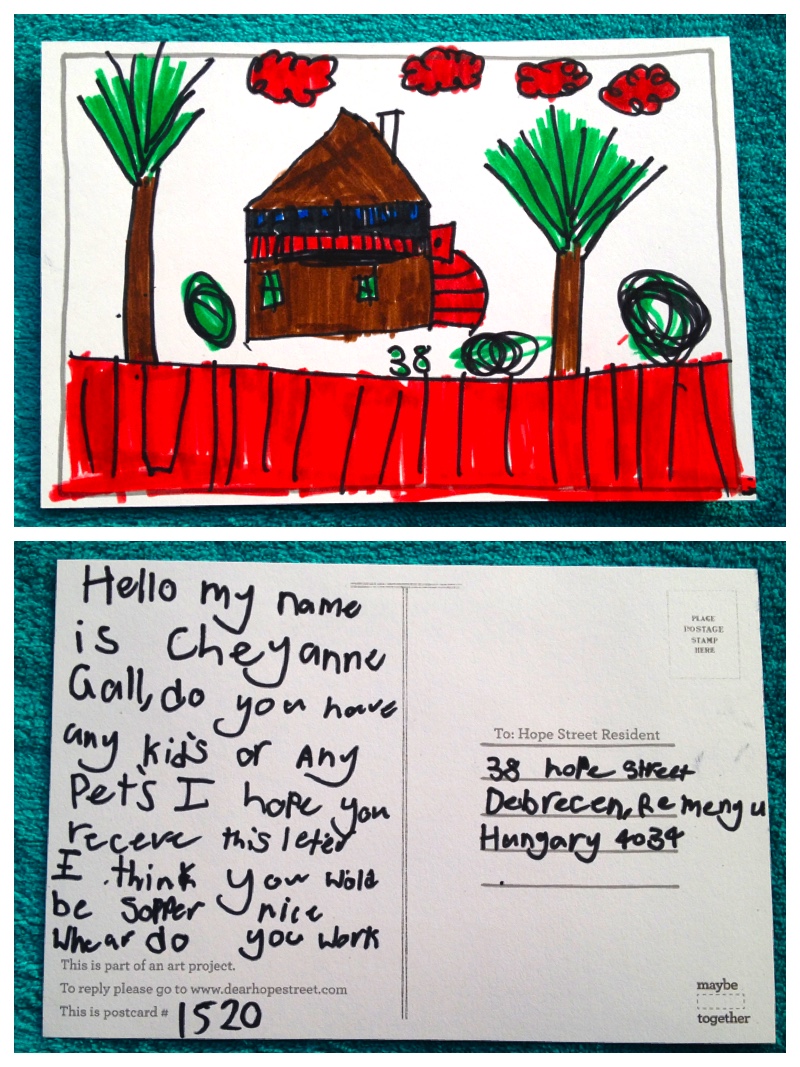 38
Hello my name
is Cheyanne
Gall, do you have
any kid's or Any
Pet's I hope you
receve this leter
I think you wold
be sopper nice
whear do you work
This is part of an art project.
To reply please go to www.dearhopestreet.com
This is postcard # 1520
PLACE
POSTAGE
STAMP
HERE
To: Hope Street Resident
38 hope street
Debrecen, Remeng u
Hungary 4034
maybe
together